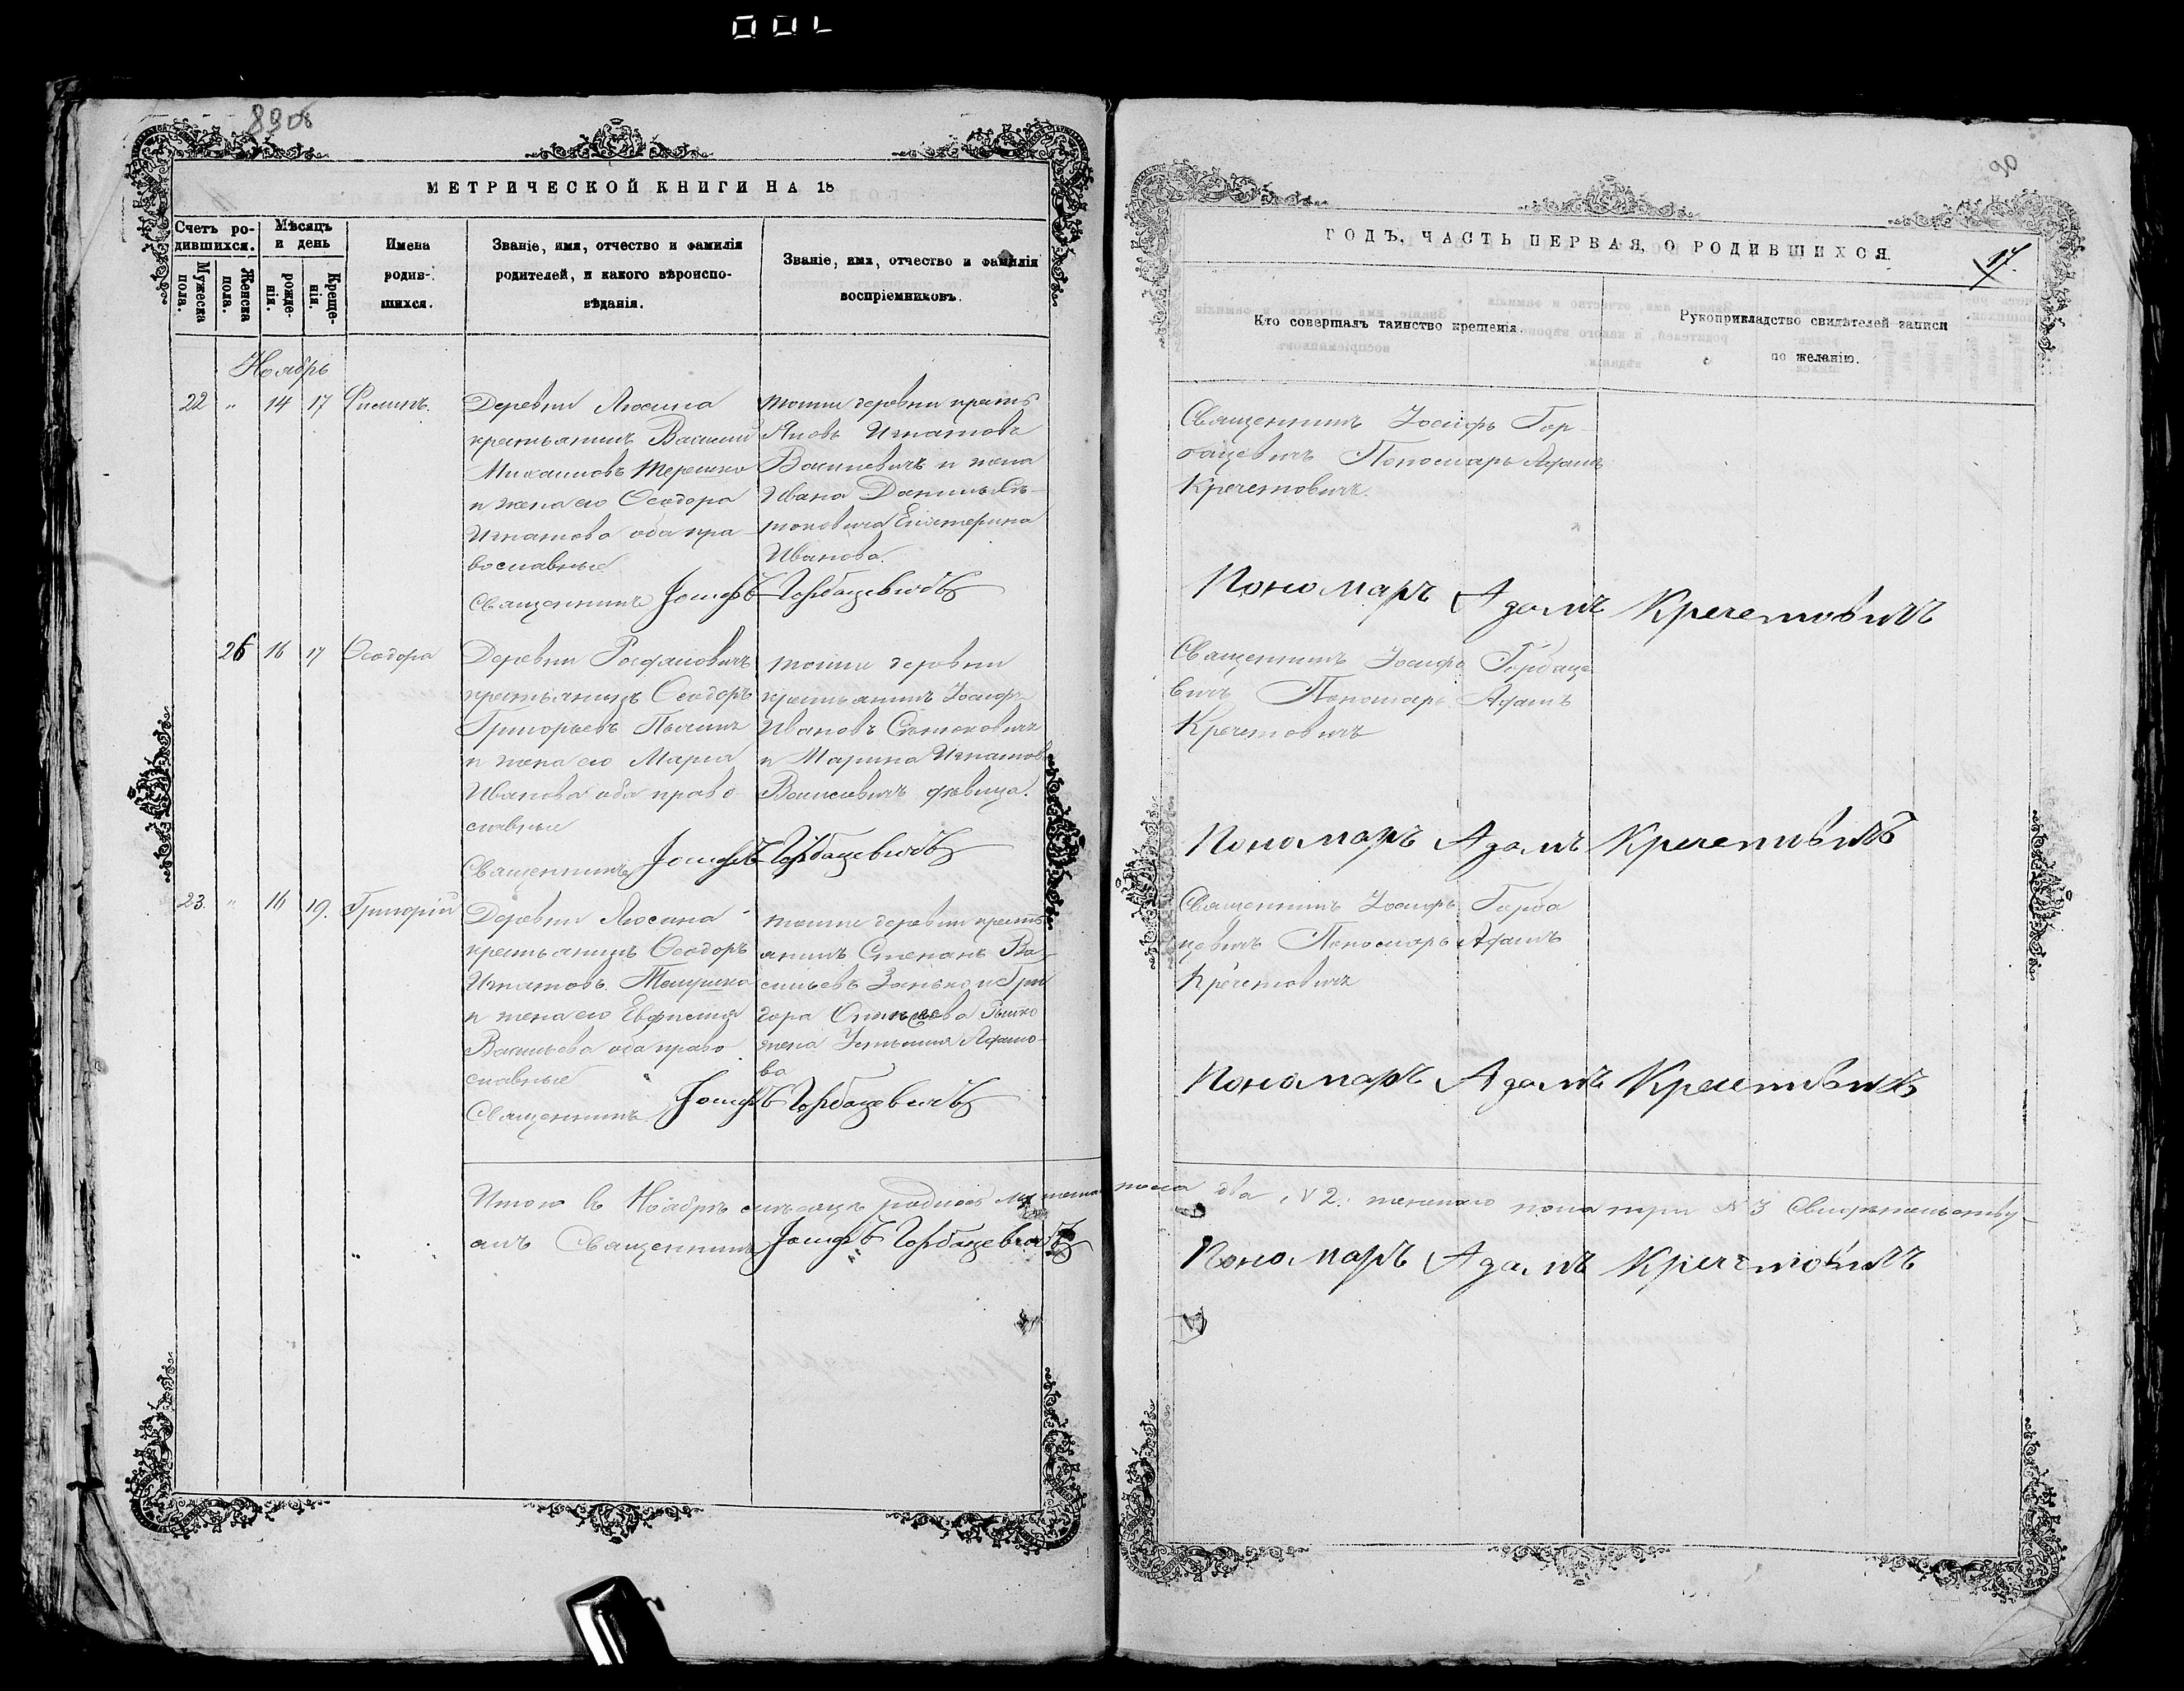 89 об
МЕТРИЧЕСКОЙ КНИГИ НА 18
Счетъ ро-
дившихся.
Мужеска
пола.
Женска
пола.
Мѣсяцъ
и день
рожде-
нія.
Креще-
нія.
Имена
родив-
шихся.
Званіе, имя, отчество и фамилія
родителей, и какого вѣроиспо-
вѣданія.
Званіе, имя, отчество и фамилія
воспріемниковъ.
Ноябрь
22 " 14 17 Филипъ.
Деревни Люсина
крестьянинъ Василий
Михаиловъ Терешко
и жена его Ѳеодора
Игнатова оба пра-
вославные
Священникъ Іосифъ Горбацевичъ
тойже деревни крест
Яковъ Игнатовъ
Васи­левичъ и жена
Ивана Данилы
Екатерина
Иванова.
26 16 17 Ѳеодора
Деревни
крестьянинъ Ѳеодоръ
Григорьевъ
и жена его Марія
Иванова оба право
славные
Священникъ Іосифъ Горбацевичъ
тойже деревни
крестьянинъ Іосифъ
Ивановъ
и Марина Игнатова
Василевичъ дѣвица.
23. " 16 19. Григорій
Деревни Люсина
крестьянинъ Ѳеодоръ
Игнатовъ
и жена его Евфимія
Васильева оба право
славные
Священникъ Іосифъ Горбацевичъ
тойже деревни крест
янинъ Степанъ Ва-
сильевъ Занько и Гри
гора
жена Устинія Адамо-
ва
Итого въ Ноябрѣ мѣсяцѣ родилось мужеска пола два, N 2. женскаго пола три N 3 Свидѣтельству-
емъ Священникъ Іосифъ Горбацевичъ
Пономарь Адамъ Кречетовичъ
90
ГОДЪ, ЧАСТЬ ПЕРВАЯ, О РОДИВШИХСЯ.
17.
Кто совершалъ таинство крещенія.
Рукоприкладство свидѣтелей записи
по желанію.
Священникъ Іосифъ Гор-
бацевичъ Пономарь Адамъ
Кречетовичъ.
Пономаръ Адамъ Кречетовичъ
Священникъ Іосифъ Горбаце
вичъ Пономарь Адамъ
Кречетовичъ
Пономаръ Адамъ Кречетовичъ
Священникъ Іосифъ Горба
цевичъ Пономарь Адамъ
Кречетовичъ
Пономаръ Адамъ Кречетовичъ